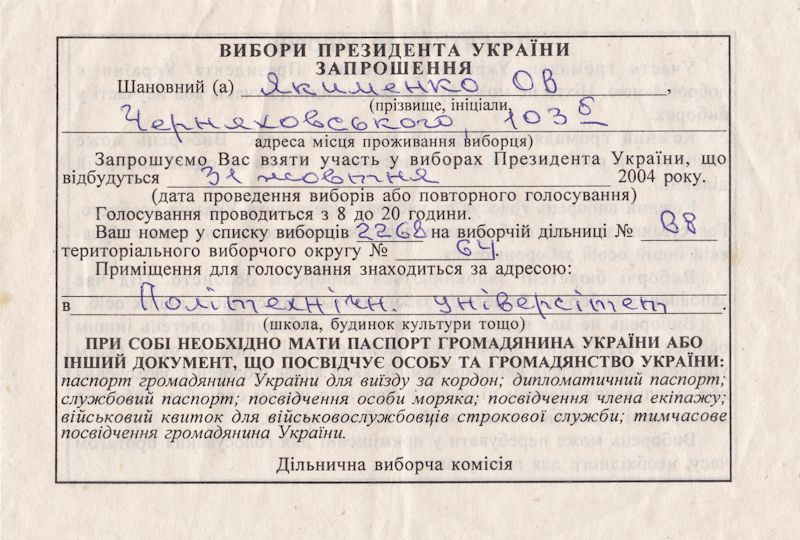 ВИБОРИ ПРЕЗИДЕНТА УКРАЇНИ
ЗАПРОШЕННЯ
Шановний (а) Якименко ОВ,
(прізвище, ініціали,
Черняховського, 103б
адреса місця проживання виборця)
Запрошуємо Вас взяти участь у виборах Президента України, що
відбудуться 31 жовтня 2004 року.
(дата проведення виборів або повторного голосування)
Голосування проводиться з 8 до 20 години.
Ваш номер у списку виборців 2268 на виборчій дільниці № 98
територіального виборчого округу № 64.
Приміщення для голосування знаходиться за адресою:
в Політехнічн. університет.
(школа, будинок культури тощо)
ПРИ СОБІ НЕОБХІДНО МАТИ ПАСПОРТ ГРОМАДЯНИНА УКРАЇНИ АБО
ІНШИЙ ДОКУМЕНТ, ЩО ПОСВІДЧУЄ ОСОБУ ТА ГРОМАДЯНСТВО УКРАЇНИ:
паспорт громадянина України для виїзду за кордон; дипломатичний паспорт;
службовий паспорт; посвідчення особи моряка; посвідчення члена екіпажу;
військовий квиток для військовослужбовців строкової служби; тимчасове
посвідчення громадянина України.
Дільнична виборча комісія